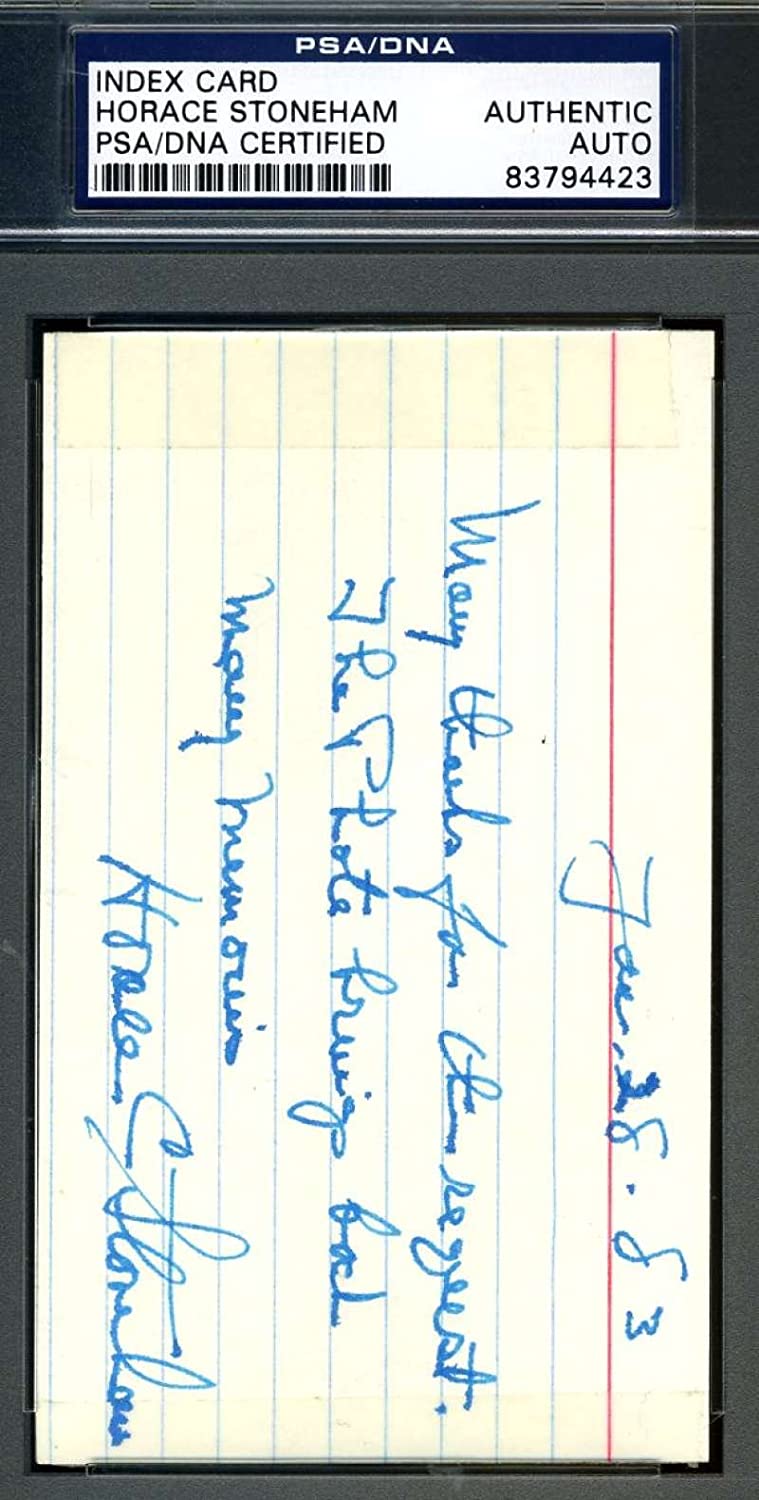 PSA/DNA
INDEX CARD
HORACE STONEHAM
PSA/DNA CERTIFIED
AUTHENTIC
AUTO
83794423
Jan. 28. 83
Many thanks for the reqest.
The Photo brings back
Many memories
Horace Stoneham